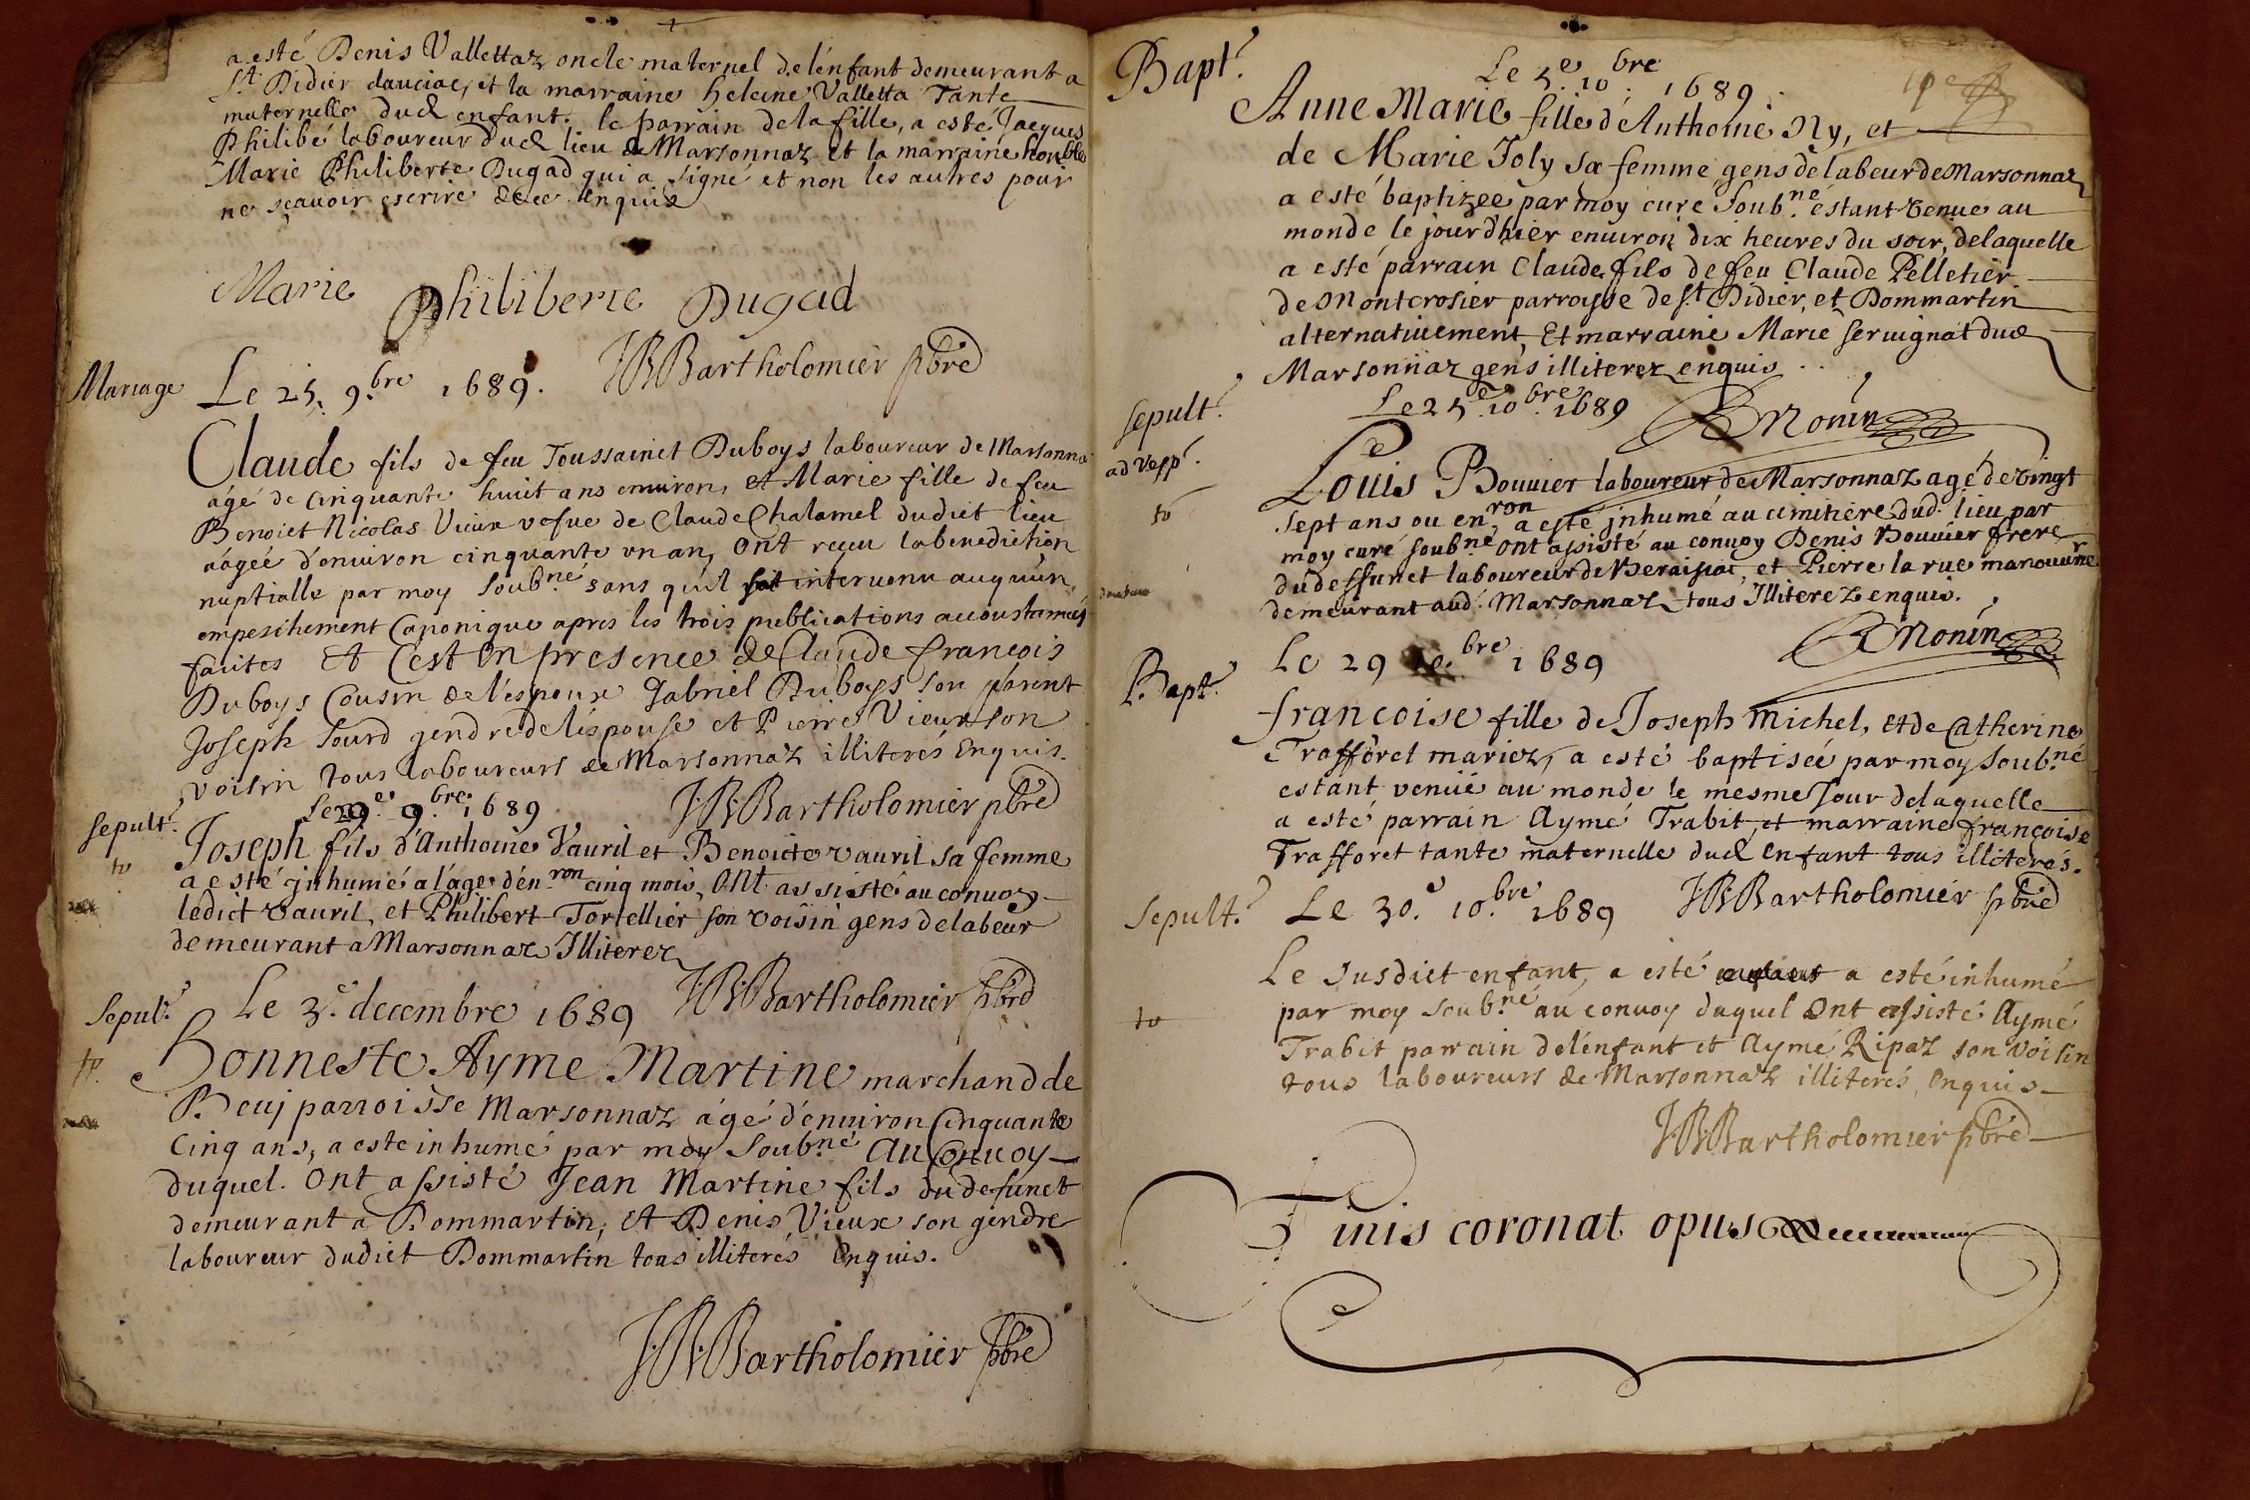 a esté Denis Vallettaz oncle maternel de lénfant demeurant a
St. Didier dauciac, et la marraine heleine Valletta Tante
maternelle dud enfant. le parrain de la fille, a esté Jacques
Philibé laboureur dud lieu de Marsonnaz et la marraine honble
Marie Philiberte Dugad qui a signé et non les autres pour
ne sçauoir escrire de ce enquis
Marie Philiberte Dugad
JBBartholomier pbre
Mariage
Le 25. 9.bre 1689.
Claude fils de feu Toussainct Duboys laboureur de Marsonna
âgé de cinquante huict ans enuiron, et Marie fille de feu
Benoict Nicolas Vieux vefue de Claude Chalamel dudict lieu
âagée d'enuiron cinquante vn an, ont reçeu la benediction
nuptialle par moy soub.né sans qu'il soit interuenu auqu'un
empeschement Canonique apres les trois publications accoustumées
faites et c'est en presence de Claude françois
Duboys Cousin de l'espoux Gabriel Duboys son parent
Joseph Sourd gendre de l'espouse et Pierre Vieux son
voisin tous laboureurs de Marsonnaz illiterés enquis.
JBBartholomier pbre
sepult.
to
Le 29.e 9.bre 1689
Joseph fils d'Anthoine Vauril et Benoicte vauril sa femme
a esté jnhumé a lâge d'en.ron cinq mois, ont assisté au conuoy
ledict vauril, et Philibert Tortellier son voisin gens de labeur
demeurant a Marsonnaz Illiterez
JBBartholomier pbre
Sepul.
to
Le 3.e decembre 1689
Honneste Ayme Martine marchand de
Beuj parroisse Marsonnaz âgé d'enuiron Cinquante
Cinq ans, a este inhumé par moy Soub.né au Conuoy
duquel. ont assisté Jean Martine fils du defunct
demeurant a Dommartin, et Denis Vieux son gendre
laboureur dudict Dommartin tous illiterés enquis.
JBBartholomier pbre
Bapt.
Le 5.e 10.bre 1689.
Anne Marie fille d'Anthoine Ny, et
de Marie Joly sa femme gens de labeur de Marsonnaz
a esté baptizée par moy curé soub.né estant venue au
monde le jour d'hier enuiron dix heures du soir, de laquelle
a esté parrain Claude fils de feu Claude Pelletier
de Montcrosier parroysse de St. Didier, et Dommartin
alternatiuement, Et marraine Marie seruignat dud
Marsonnaz gens illiterez enquis
Monin
sepult.
ad vesp.
to
Le 25.e 10.bre 1689
Louis Bouuier laboureur de Marsonnaz agé de vingt
sept ans ou en.ron, a esté jnhumé au cimitiére dud. lieu par
moy curé soub.né ont assisté au conuoy Denis Bouuier frere
du deffunct laboureur de Beraisiat, et Pierre la rue manouure
demeurant aud. Marsonnaz tous Illiterez enquis.
Monin
Bapt.
Le 29 10.bre 1689
françoise fille de Joseph Michel, et de Catherine
Trafforet mariez, a esté baptisée par moy soub.né
estant venüe au monde le mesme Jour de laquelle
a esté parrain Aymé Trabit, et marraine françoise
Trafforet tante maternelle dud enfant tous illiterés.
JBBartholomier pbre
Sepult.
to
Le 30.e 10.bre 1689
Le Susdict enfant, a esté a esté inhumé
par moy soub.né au conuoy duquel ont assisté Aymé
Trabit parrain de lénfant et Aymé Ripaz son voisin
tous laboureurs de Marsonnaz illiterés, enquis
JBBartholomier pbre
Finis coronat opus